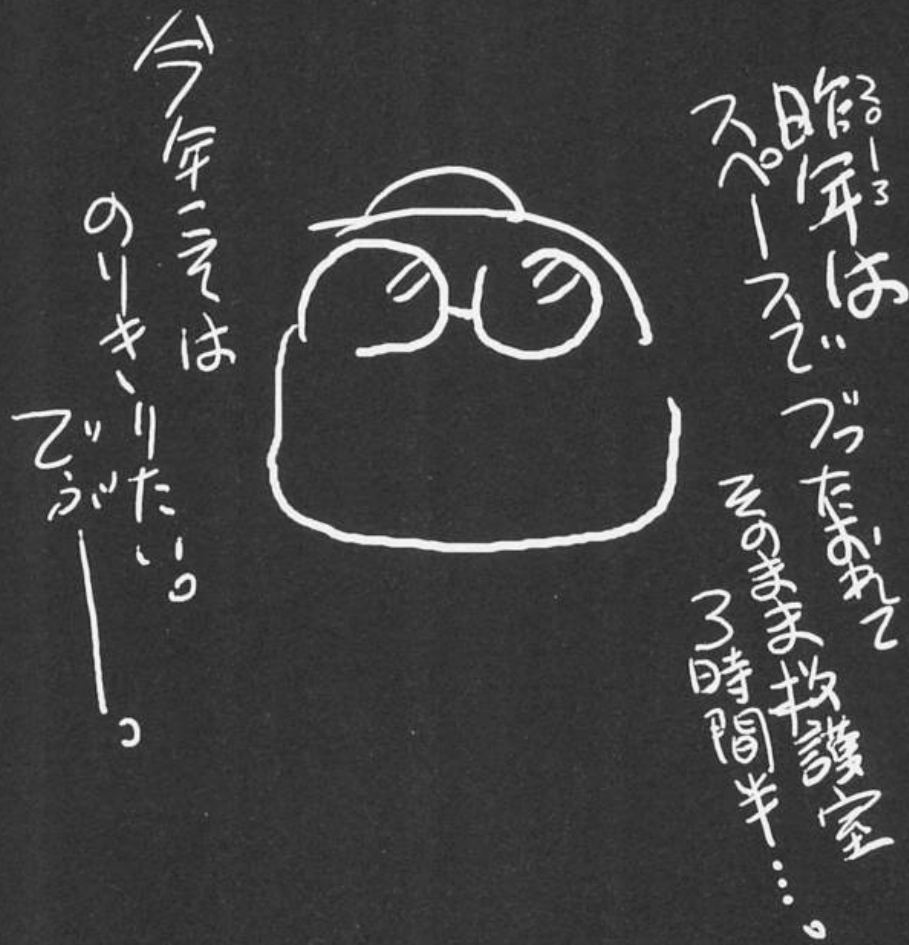 昨年は
スペースでぶったおれて
そのまま救護室
3時間半…。
今年こそは
のりきりたい。
でぶ――。